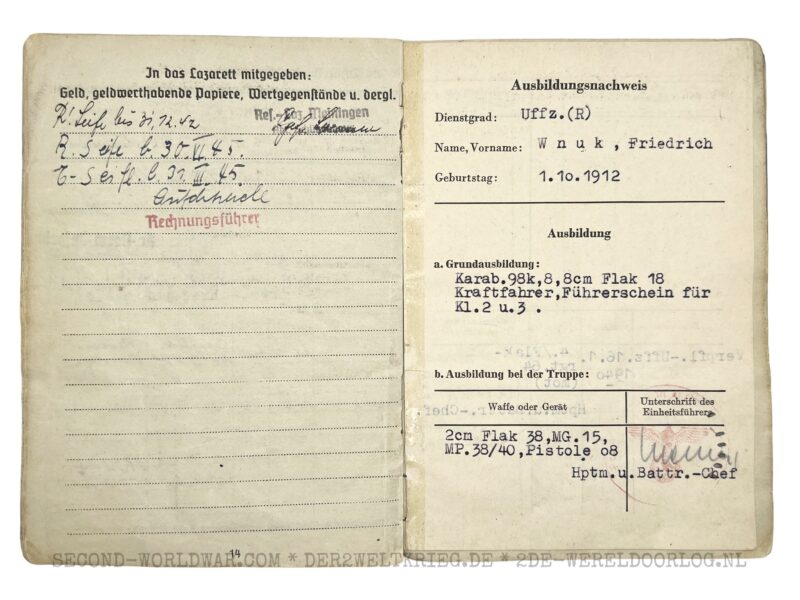 In das Lazarett mitgegeben:
Geld, geldwerthabende Papiere, Wertgegenstände u. dergl.
Ref.-Laz. Meiningen
K. Seife bis 31.12.42
R. Seife b. 30. VI. 45.
b. 31. III. 45.
Rechnungsführer
14
Ausbildungsnachweis
Dienstgrad: Uffz.(R)
Name, Vorname: Wnuk, Friedrich
Geburtstag: 1.10.1912
Ausbildung
a. Grundausbildung:
Karab.98k,8,8cm Flak 18
Kraftfahrer,Führerschein für
Kl.2 u.3 .
Verpfl.-Uffz.16.1.
1940
b. Ausbildung bei der Truppe:
Waffe oder Gerät
Unterschrift des
Einheitsführers
2cm Flak 38,MG.15,
MP.38/40,Pistole o8
Hptm.u.Battr.-Chef
SECOND-WORLDWAR.COM * DER2WELTKRIEG.DE * 2DE-WERELDOORLOG.NL